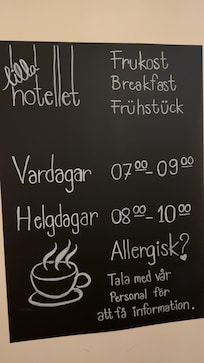 lilla
hotellet
Frukost
Breakfast
Frühstück
Vardagar 07⁰⁰-09⁰⁰
Helgdagar 08⁰⁰-10⁰⁰
Allergisk?
Tala med vår
Personal för
att få information.